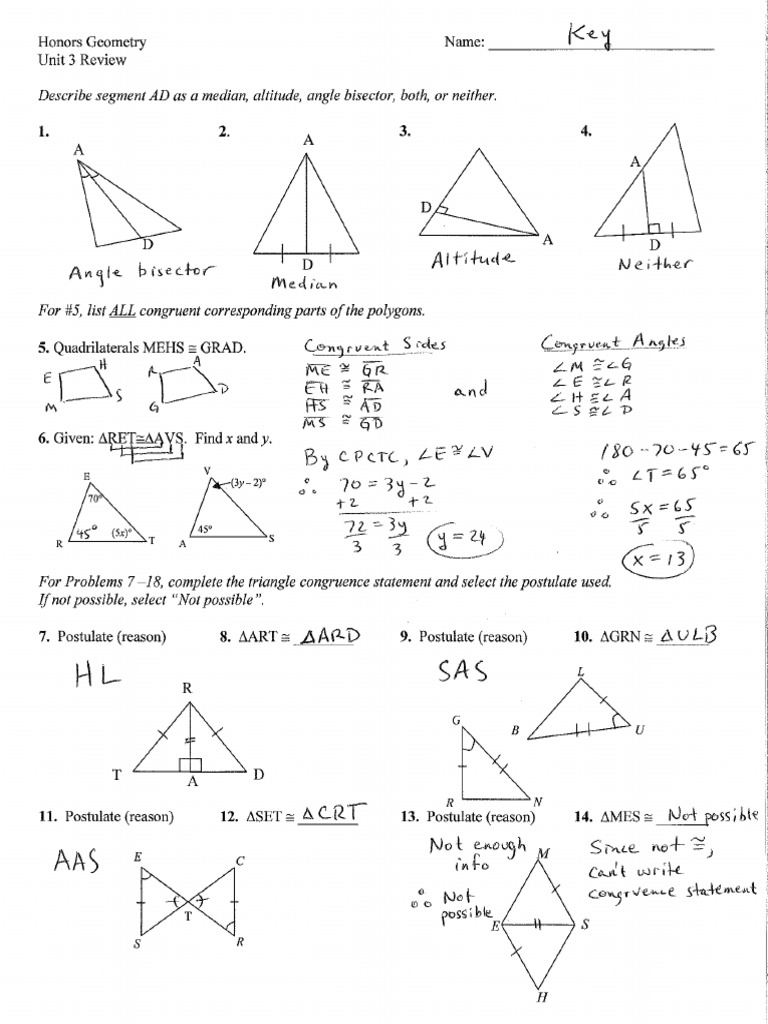 Honors Geometry
Name: Key
Unit 3 Review
Describe segment AD as a median, altitude, angle bisector, both, or neither.
1.
A
D
Angle bisector
2.
A
D
Median
3.
D
A
Altitude
4.
A
D
Neither
For #5, list ALL congruent corresponding parts of the polygons.
5. Quadrilaterals MEHS ≅ GRAD.
E H
M S
R A
G D
Congruent Sides
ME ≅ GR
EH ≅ RA
HS ≅ AD
MS ≅ GD
and
Congruent Angles
∠M ≅ ∠G
∠E ≅ ∠R
∠H ≅ ∠A
∠S ≅ ∠D
6. Given: ΔRET≅ΔAVS. Find x and y.
E
70°
45° (5x)°
R T
V
(3y – 2)°
45°
A S
By CPCTC, ∠E ≅ ∠V
∴ 70 = 3y - 2
+2 +2
72 = 3y
3 3
y = 24
180 - 70 - 45 = 65
∴ ∠T = 65°
∴ 5x = 65
5 5
x = 13
For Problems 7 –18, complete the triangle congruence statement and select the postulate used.
If not possible, select “Not possible”.
7. Postulate (reason)
HL
8. ΔART ≅ ΔARD
R
T A D
9. Postulate (reason)
SAS
10. ΔGRN ≅ ΔULB
G
R N
L
B U
11. Postulate (reason)
AAS
12. ΔSET ≅ ΔCRT
E C
T
S R
13. Postulate (reason)
Not enough
info
∴ Not
possible
14. ΔMES ≅ Not possible
Since not ≅,
can't write
congruence statement
M
E S
H